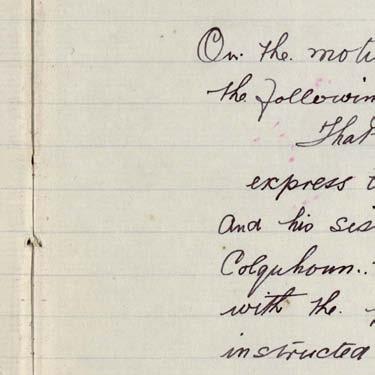 On. the. moti
the following
That
express t
and his sis
Colquhoun..
with the.
instructed